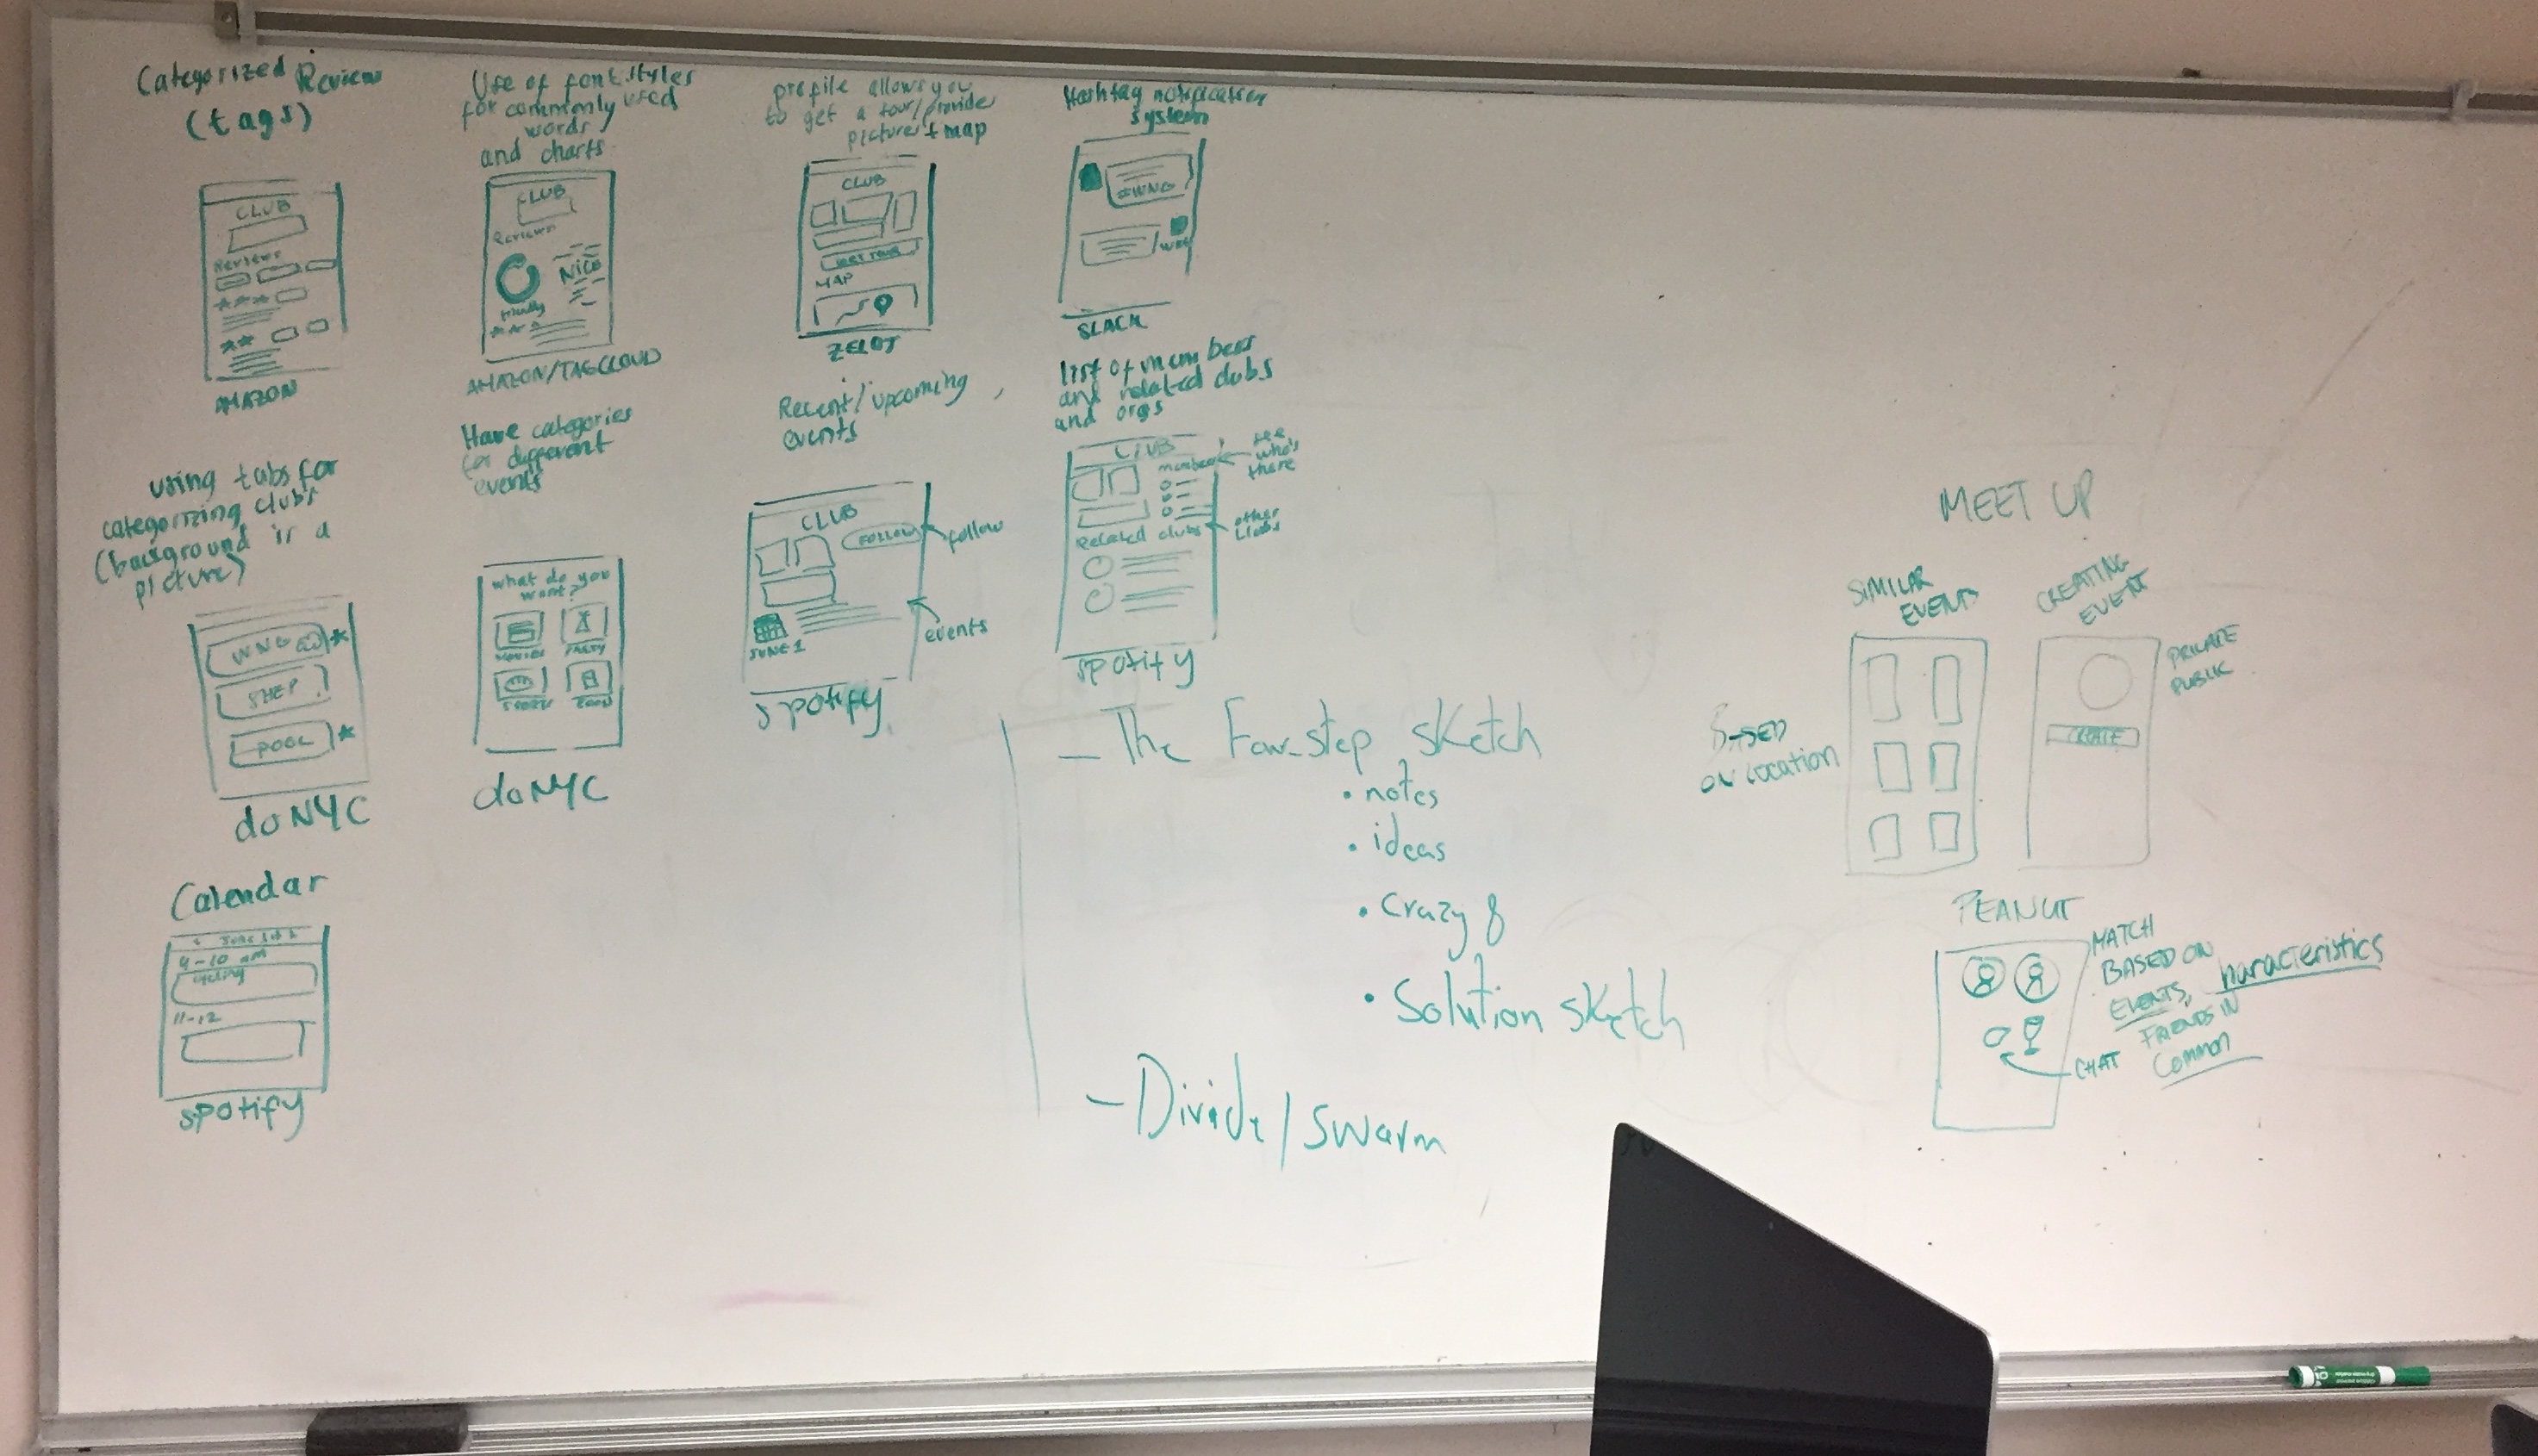 Categorized Reviews
(tags)
CLUB
Reviews
AMAZON
Use of font styles
for commonly used
words
and charts
CLUB
Reviews
NICE
friendly
AMAZON/TAGCLOUD
profile allows you
to get a tour/provide
pictures + map
CLUB
MAP
ZELOT
Hashtag notification
system
#WNG
SLACK
using tabs for
categorizing clubs
(background is a
picture)
WNG
SHEP
POOL
doNYC
Have categories
for different
events
what do you
want?
MOVIES
PARTY
SPORTS
FOOD
doNYC
Recent/upcoming
events
CLUB
FOLLOW
follow
JUNE 1
events
spotify
list of members
and related clubs
and orgs
CLUB
members
see
who's
there
Related clubs
other
clubs
spotify
Calendar
9-10 am
cycling
11-12
spotify
- The Four-step sketch
• notes
• ideas
• Crazy 8
• Solution sketch
- Divide/Swarm
MEET UP
SIMILAR
EVENTS
BASED
ON LOCATION
CREATING
EVENT
PRIVATE
PUBLIC
CREATE
PEANUT
MATCH
BASED ON
EVENTS, haracteristics
FRIENDS IN
Common
CHAT